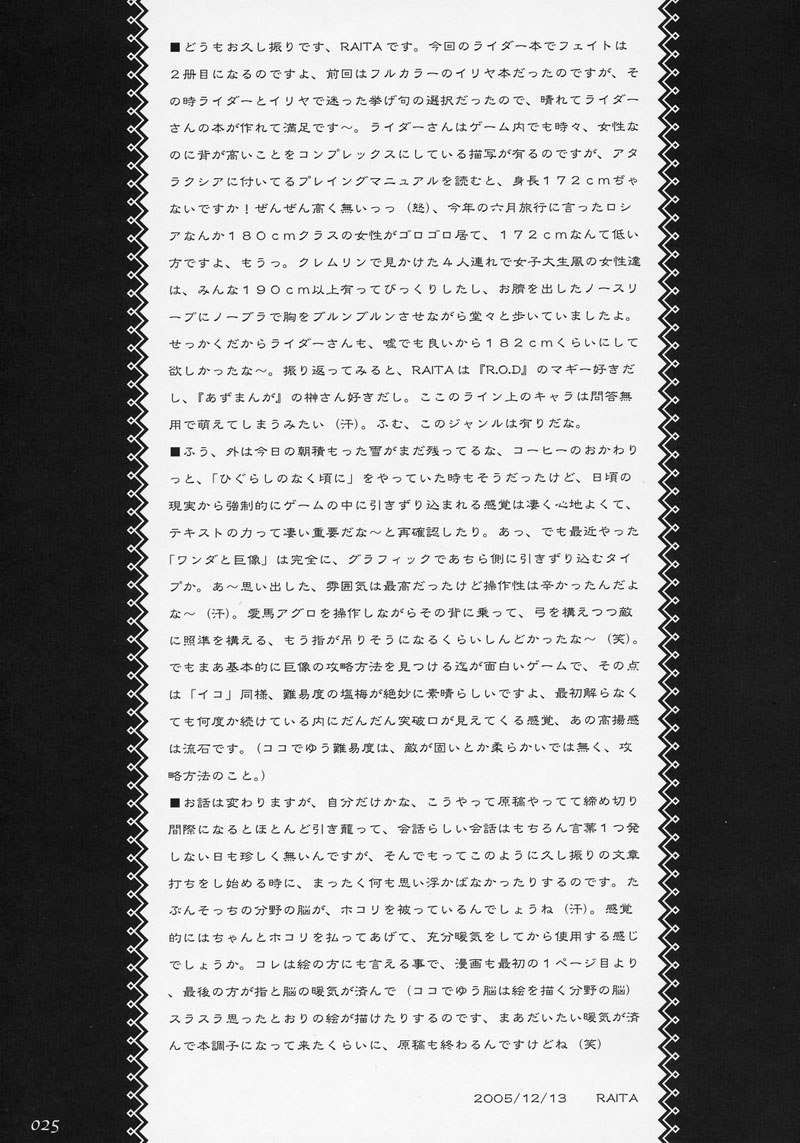 ■どうもお久し振りです、RAITAです。今回のライダー本でフェイトは
２冊目になるのですよ、前回はフルカラーのイリヤ本だったのですが、そ
の時ライダーとイリヤで迷った挙げ句の選択だったので、晴れてライダー
さんの本が作れて満足です〜。ライダーさんはゲーム内でも時々、女性な
のに背が高いことをコンプレックスにしている描写が有るのですが、アタ
ラクシアに付いてるプレイングマニュアルを読むと、身長１７２ｃｍぢゃ
ないですか！ぜんぜん高く無いっっ（怒）、今年の六月旅行に言ったロシ
アなんか１８０ｃｍクラスの女性がゴロゴロ居て、１７２ｃｍなんて低い
方ですよ、もうっ。クレムリンで見かけた４人連れで女子大生風の女性達
は、みんな１９０ｃｍ以上有ってびっくりしたし、お臍を出したノースリ
ーブにノーブラで胸をブルンブルンさせながら堂々と歩いていましたよ。
せっかくだからライダーさんも、嘘でも良いから１８２ｃｍくらいにして
欲しかったな〜。振り返ってみると、RAITAは『R.O.D』のマギー好きだ
し、『あずまんが』の榊さん好きだし。ここのライン上のキャラは問答無
用で萌えてしまうみたい（汗）。ふむ、このジャンルは有りだな。
■ふう、外は今日の朝積もった雪がまだ残ってるな、コーヒーのおかわり
っと、「ひぐらしのなく頃に」をやっていた時もそうだったけど、日頃の
現実から強制的にゲームの中に引きずり込まれる感覚は凄く心地よくて、
テキストの力って凄い重要だな〜と再確認したり。あっ、でも最近やった
「ワンダと巨像」は完全に、グラフィックであちら側に引きずり込むタイ
プか。あ〜思い出した、雰囲気は最高だったけど操作性は辛かったんだよ
な〜（汗）。愛馬アグロを操作しながらその背に乗って、弓を構えつつ敵
に照準を構える、もう指が吊りそうになるくらいしんどかったな〜（笑）。
でもまあ基本的に巨像の攻略方法を見つける迄が面白いゲームで、その点
は「イコ」同様、難易度の塩梅が絶妙に素晴らしいですよ、最初解らなく
ても何度か続けている内にだんだん突破口が見えてくる感覚、あの高揚感
は流石です。（ココでゆう難易度は、敵が固いとか柔らかいでは無く、攻
略方法のこと。）
■お話は変わりますが、自分だけかな、こうやって原稿やってて締め切り
間際になるとほとんど引き籠って、会話らしい会話はもちろん言葉１つ発
しない日も珍しく無いんですが、そんでもってこのように久し振りの文章
打ちをし始める時に、まったく何も思い浮かばなかったりするのです。た
ぶんそっちの分野の脳が、ホコリを被っているんでしょうね（汗）。感覚
的にはちゃんとホコリを払ってあげて、充分暖気をしてから使用する感じ
でしょうか。コレは絵の方にも言える事で、漫画も最初の１ページ目より
、最後の方が指と脳の暖気が済んで（ココでゆう脳は絵を描く分野の脳）
スラスラ思ったとおりの絵が描けたりするのです、まあだいたい暖気が済
んで本調子になって来たくらいに、原稿も終わるんですけどね（笑）
2005/12/13　RAITA
025